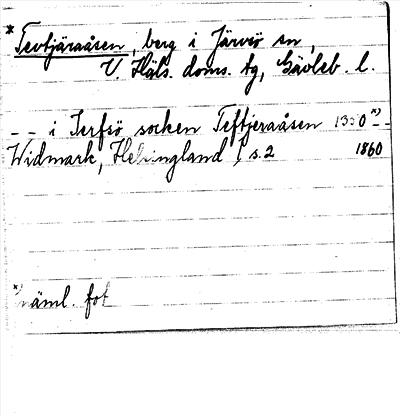 * Tevtjäraåsen, berg i Järvsö sn,
V. Häls. doms. tg, Gävleb. l.
-- i Jerfsö socken Teftjeraåsen 1350 *) --
Widmark, Helsingland I s. 2 1860
*) näml. fot